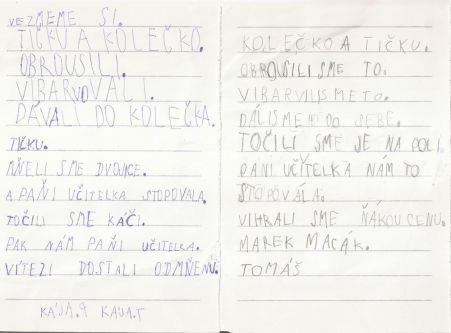 VEZMEME SI.
TIČKU A KOLEČKO.
OBROUSILI.
VIBARVOVALI.
DÁVALI DO KOLEČKA.
TIČKU.
MŇELI SME DVOJICE.
A PAŇI UČITELKA STOPOVALA.
TOČILI SME KÁČI.
PAK NÁM PAŇI UČITELKA.
VÍTEZI DOSTALI ODMŇENU.
KÁJA.Y KÁJA.T
KOLEČKO A TIČKU.
OBROUSILI SME TO.
VIBARVILI SME TO.
DÁLI SME TO DO SEBE.
TOČILI SME JE NA POLI
PANI UČITELKA NÁM TO
STOPOVÁLA.
VIHRÁLI SME ŇÁKOU CENU.
MAREK MACÁK.
TOMÁŠ